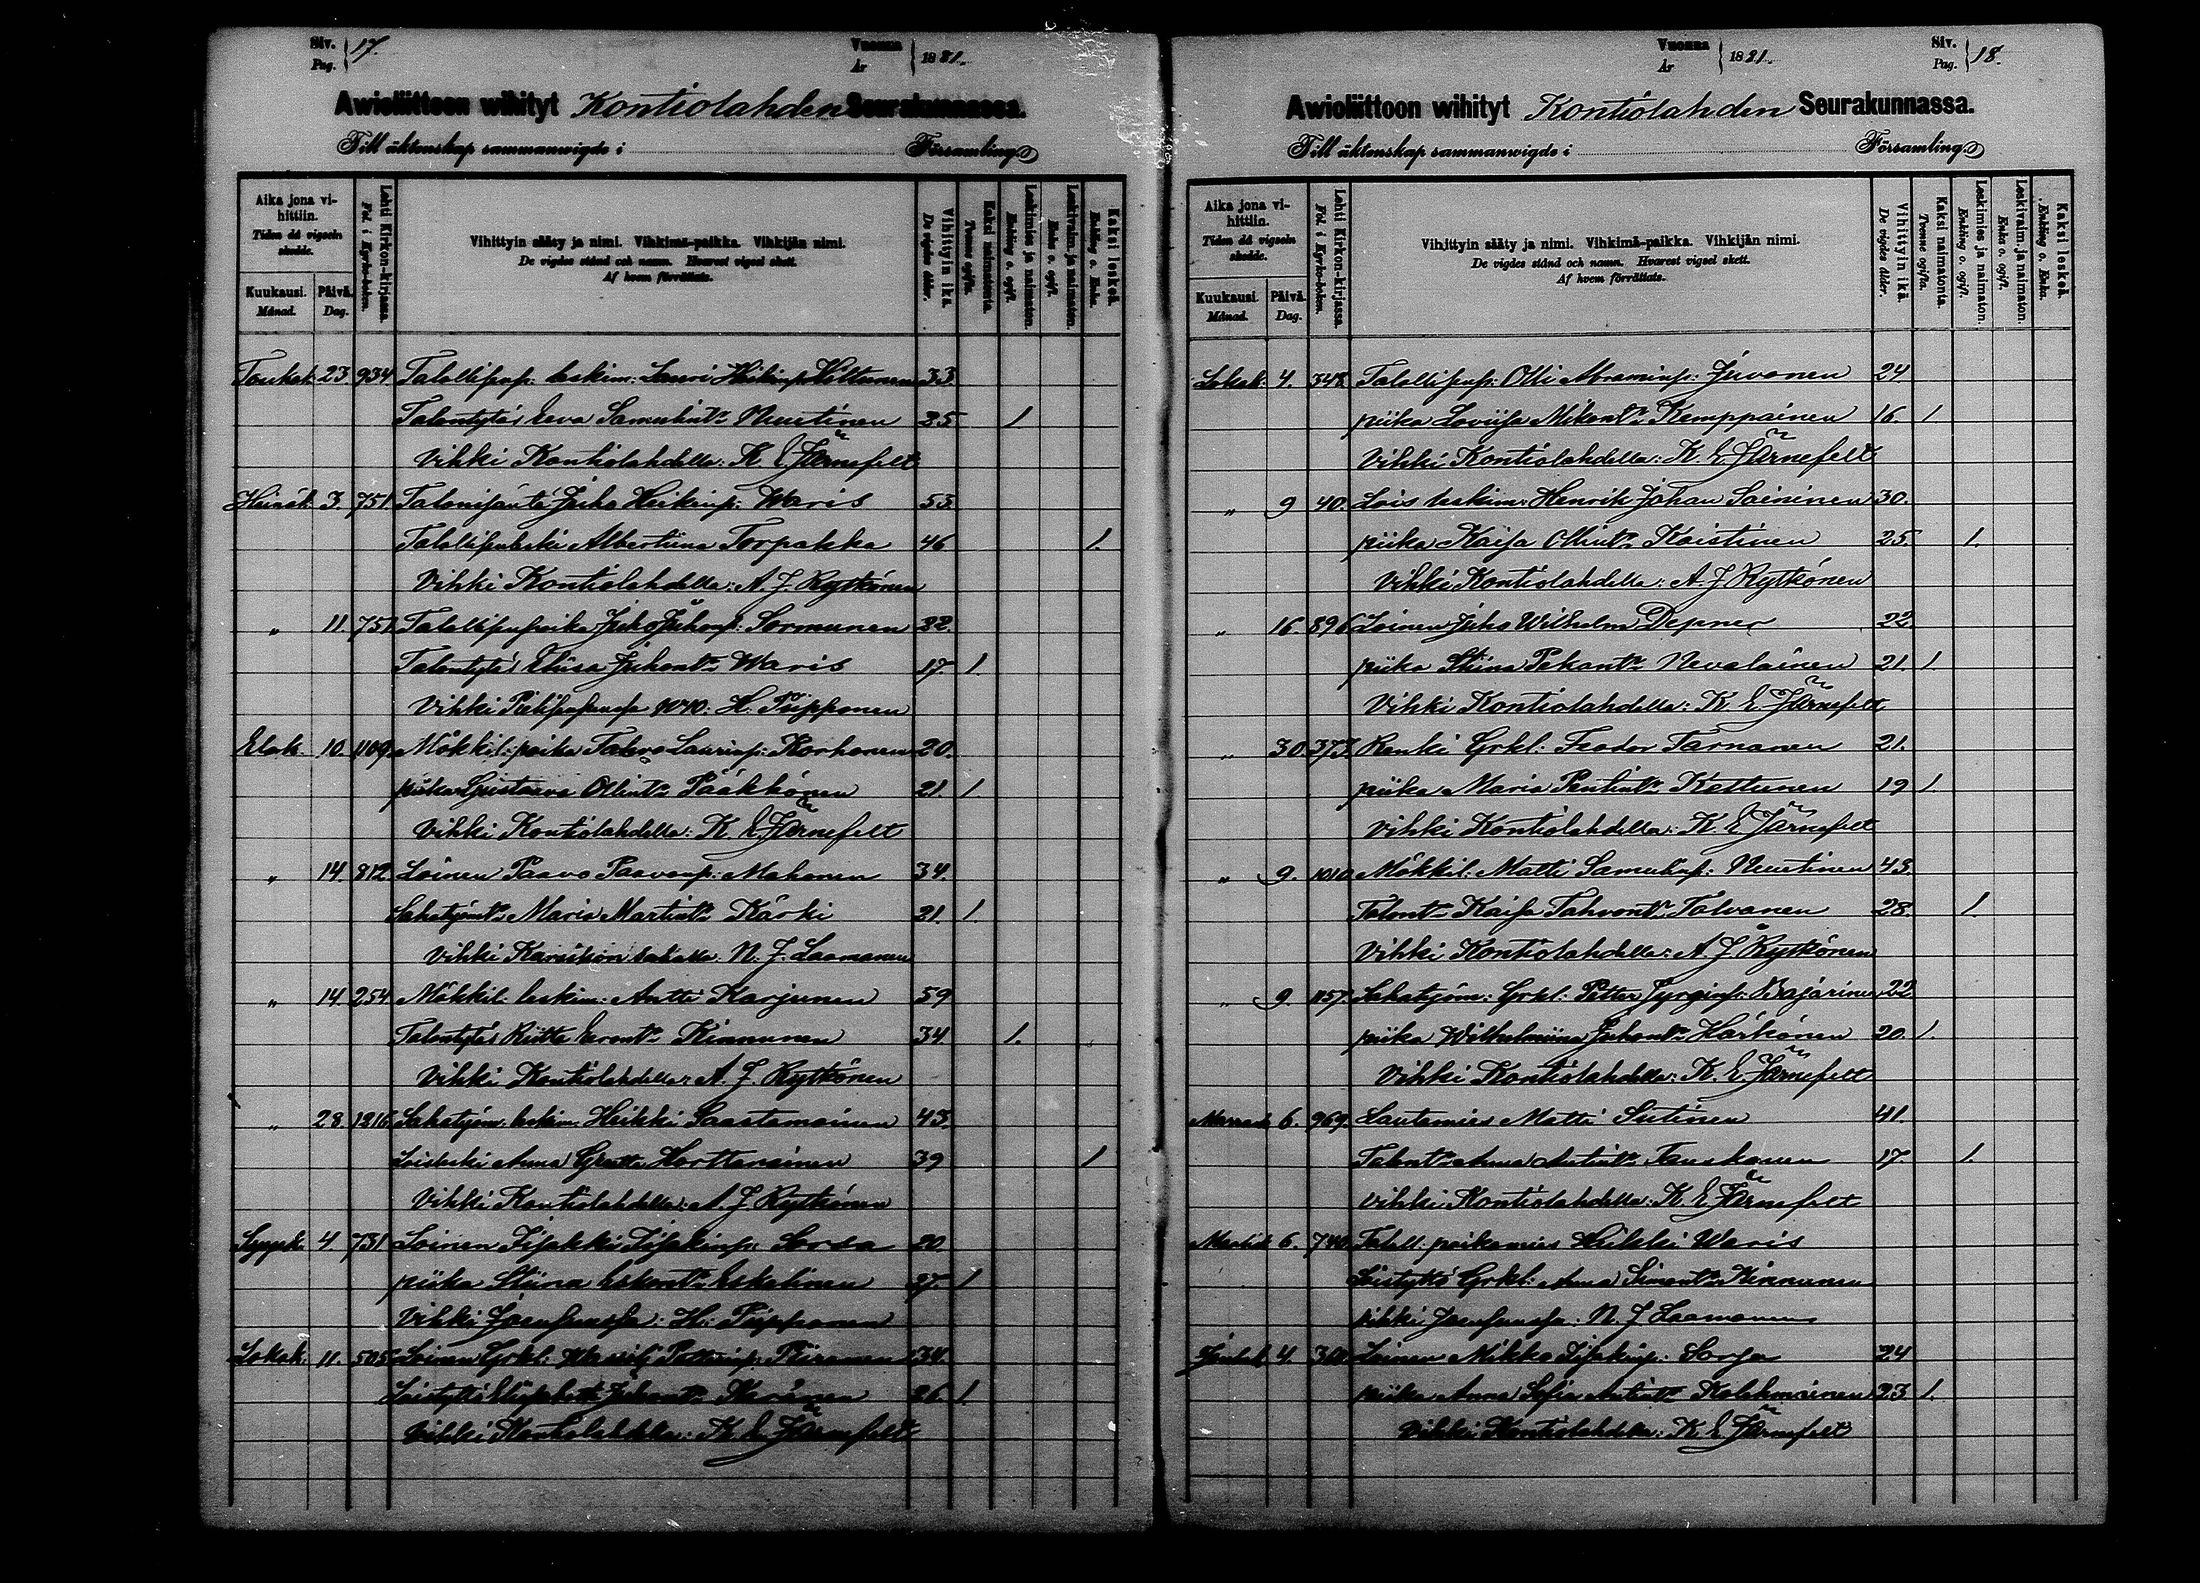 Siv. Pag. 17.
Vuonna År 1881.
Awioliittoon wihityt Kontiolahden Seurakunnassa.
Till äktenskap sammanwigde i Församling
Aika jona vihittiin. Tiden då vigseln skedde.
Kuukausi. Månad. Päivä. Dag.
Lehti Kirkon-kirjassa. Fol. i Kyrko-boken.
Vihittyin sääty ja nimi. Vihkimä-paikka. Vihkijän nimi.
De vigdes stånd och namn. Hvarest vigsel skett.
Af hvem förrättats.
Vihittyin ikä. De vigdes ålder.
Kaksi naimatonta. Tvenne ogifta.
Leskimies ja naimaton. Enkling o. ogift.
Leskivaim. ja naimaton. Enka o. ogift.
Kaksi leskeä. Enkling o. Enka.
Toukok. 23. 934 leskim: Lauri Heikinp. Hiltunen 33
Talontytö Eeva Samulint. Nuutinen 35 1
Vihki Kontiolahdella: K. E. Järnefelt
Heinäk. 3. 751. Talonisäntä Juho Heikinp. Waris 53.
Albertiina Torpakka 46 1.
Vihki Kontiolahdella: A. J. Rytkönen
" 11. 751 Juho Juhonp: Sormunen 32.
Talontytö Eliisa Juhont. Waris 17. 1.
Vihki H. Piipponen
Elok. 10. 1109 Mökkil: poika Tahvo Laurinp: Korhonen 20.
piika Gustaava Ollint. Pääkkönen 21. 1
Vihki Kontiolahdella: K. E. Järnefelt
" 14. 812 Loinen Paavo Paavonp: Mahonen 34.
Maria Martint. Kärki 21. 1
Vihki N. J. Laamanen
" 14. 254 Mökkil. leskim: Antti Karjunen 59
Talontytö Riitta Eeront. Kinnunen 34 1.
Vihki Kontiolahdella: A. J. Rytkönen
" 28. 1216 Sahatyöm. leskim. Heikki Saastamoinen 43.
Loisleski Anna Greetta Horttanainen 39 1
Vihki Kontiolahdella: A. J. Rytkönen
Syysk. 4. 731 Loinen Iisakki Iisakinp: Sorsa 20
piika Stiina Eskont. Eskelinen 27. 1
Vihki Joensuussa: H. Piipponen
Lokak. 11. 505 Loinen Grkl: Wasilj Petterinp: Piiranen 34.
Loistytö Juhont. Keränen 26. 1.
Vihki Kontiolahdella: K. E. Järnefelt
Vuonna År 1881.
Siv. Pag. 18.
Awioliittoon wihityt Kontiolahden Seurakunnassa.
Till äktenskap sammanwigde i Församling
Aika jona vihittiin. Tiden då vigseln skedde.
Kuukausi. Månad. Päivä. Dag.
Lehti Kirkon-kirjassa. Fol. i Kyrko-boken.
Vihittyin sääty ja nimi. Vihkimä-paikka. Vihkijän nimi.
De vigdes stånd och namn. Hvarest vigsel skett.
Af hvem förrättats.
Vihittyin ikä. De vigdes ålder.
Kaksi naimatonta. Tvenne ogifta.
Leskimies ja naimaton. Enkling o. ogift.
Leskivaim. ja naimaton. Enka o. ogift.
Kaksi leskeä. Enkling o. Enka.
Lokak. 4. 348. Olli Abraminp: Juvonen 24
piika Loviisa Mikont. Kemppainen 16. 1.
Vihki Kontiolahdella: K. E. Järnefelt
" 9 40. Lois leskim. Henrik Johan Soininen 30.
piika Kaisa Ollint. Koistinen 25. 1.
Vihki Kontiolahdella: A. J. Rytkönen
" 16. 896 Loinen Juho Wilhelm Depner 22
piika Stiina Pekant. Nevalainen 21. 1.
Vihki Kontiolahdella: K. E. Järnefelt
" 30. 373. Renki Grkl: Feodor Tarnanen 21.
piika Maria Pentint. Kettunen 19 1.
Vihki Kontiolahdella: K. E. Järnefelt
" 9. 1010 Mökkil: Matti Samulinp. Nuutinen 43.
Talont. Kaisa Tahvont. Tolvanen 28. 1.
Vihki Kontiolahdella: A. J. Rytkönen
" 9. 1157. Sahatyöm: Grkl: Petter Jyrginp. Bajarinen 22
piika Wilhelmiina Juhont. Härkönen 20. 1.
Vihki Kontiolahdella: K. E. Järnefelt
Marrask. 6. 969. Lautamies Matti Sutinen 41.
Talont. Anna Antint. Tanskanen 17. 1.
Vihki Kontiolahdella: K. E. Järnefelt
6. Heikki Waris
Loistyttö Grkl: Anna Siment. Kinnunen
Vihki Joensuussa: N. J. Laamanen
Jouluk. 4. Loinen Mikko Iisakinp: Sorsa 24
piika Anna Sofia Antint. Kolehmainen 23. 1.
Vihki Kontiolahdella: K. E. Järnefelt